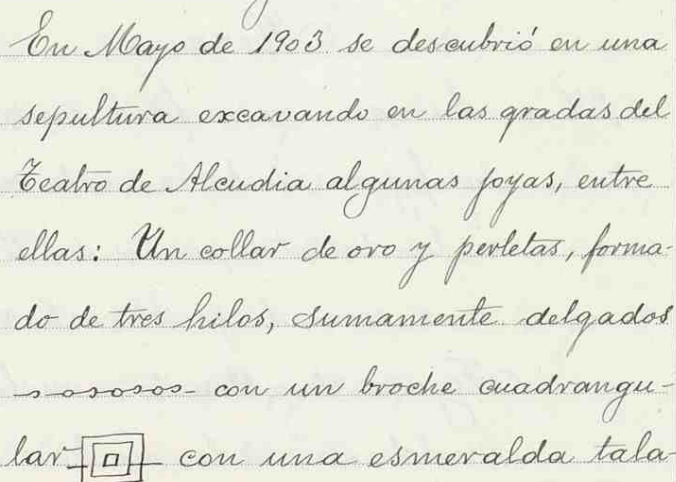 En Mayo de 1903 se descubrió en una
sepultura excavando en las gradas del
Teatro de Alcudia algunas joyas, entre
ellas: Un collar de oro y perletas, forma-
do de tres hilos, sumamente delgados
con un broche cuadrangu-
lar con una esmeralda tala-